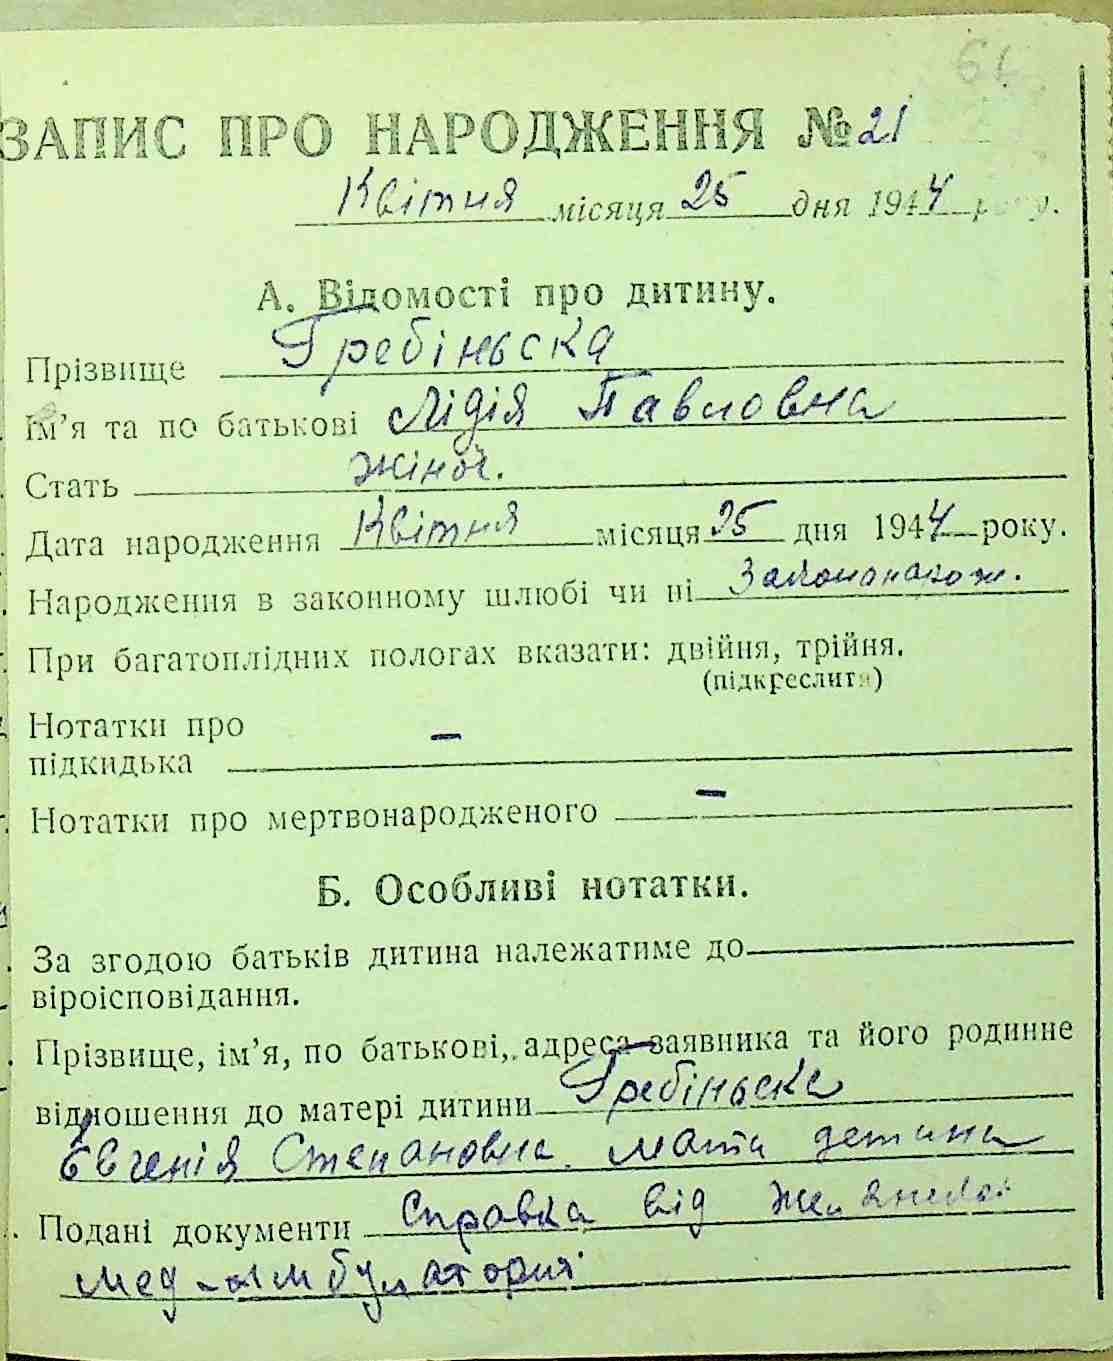 61
ЗАПИС ПРО НАРОДЖЕННЯ №21
Квітня місяця 25 дня 1944 року.
А. Відомості про дитину.
Прізвище Гребіньска
Ім'я та по батькові Лідія Павловна
Стать жіноч.
Дата народження Квітня місяця 25 дня 1944 року.
Народження в законному шлюбі чи ні
При багатоплідних пологах вказати: двійня, трійня.
(підкреслити)
Нотатки про
підкидька –
Нотатки про мертвонародженого –
Б. Особливі нотатки.
За згодою батьків дитина належатиме до
віроісповідання.
Прізвище, ім'я, по батькові, адреса заявника та його родинне
відношення до матері дитини Гребіньска
Євгенія Степановна мати детини
Подані документи Справка від
мед-амбулатория